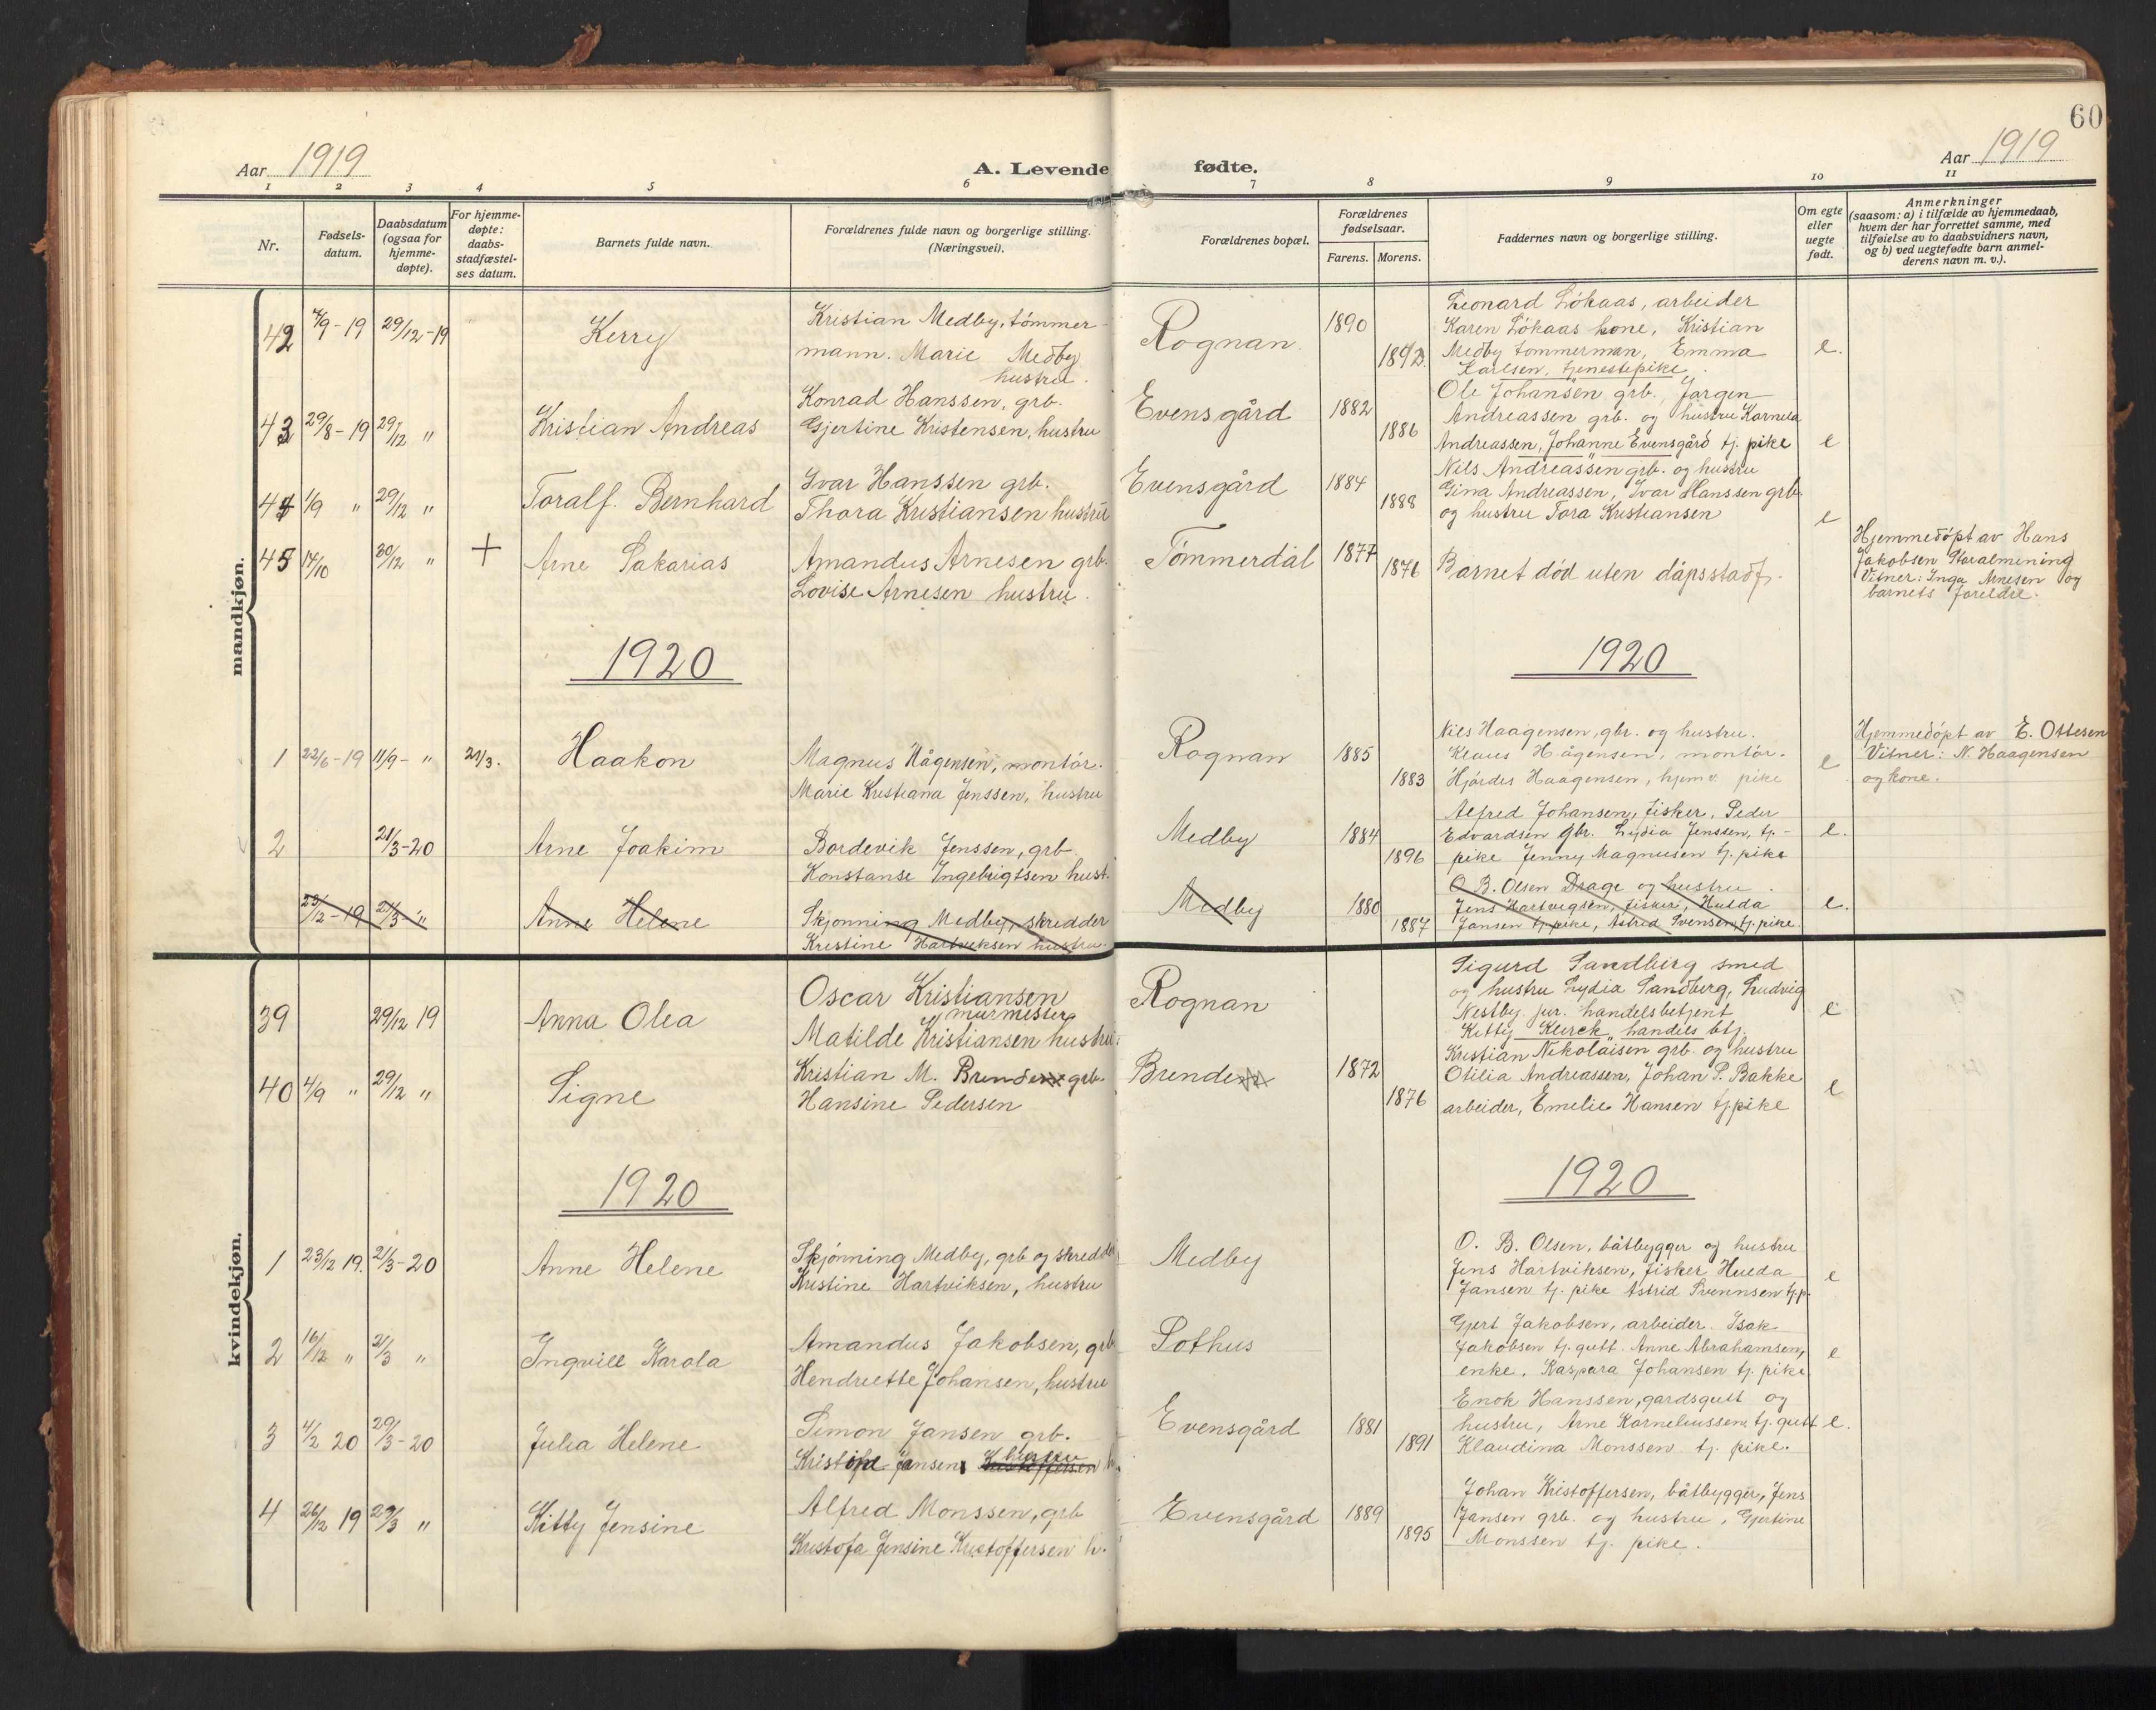 60
Aar 1919
A. Levende fødte.
Aar 1919
1 2 3 4 5 6 7 8 9 10 11
Nr.
Fødsels-
datum.
Daabsdatum
(ogsaa for
hjemme-
døpte).
For hjemme-
døpte:
daabs-
stadfæstel-
ses datum.
Barnets fulde navn.
Forældrenes fulde navn og borgerlige stilling.
(Næringsvei).
Forældrenes bopæl.
Forældrenes
fødselsaar.
Farens. Morens.
Faddernes navn og borgerlige stilling.
Om egte
eller
uegte
født.
Anmerkninger
(saasom: a) i tilfælde av hjemmedaab,
hvem der har forrettet samme, med
tilføielse av to daabsvidners navn,
og b) ved uegtefødte barn anmel-
derens navn m. v.).
mandkjøn.
42 /9-19 29/12-19
Kerry
Kristian Medby, tömmer-
mann. Marie Medby
hustru.
Rognan
1890
1892
Leonard Lökaas, arbeider
Karen Lökaas kone, Kristian
Medby tömmerman, Emma
Karlsen, tjenestepike.
e.
43 29/8-19 29/12 "
Kristian Andreas
Konrad Hanssen, grb.
Gjertine Kristensen, hustru
Evensgård
1882
1886
Ole Johansen grb. Jørgen
Andreassen grb. og hustru Karnela
Andreassen, Johanne Evensgård tj. pike
e
44 1/9 " 29/12 "
Toralf. Bernhard
Ivar Hanssen grb.
Thora Kristiansen hustru
Evensgård
1884
1888
Nils Andreassen grb. og hustru
Gina Andreassen, Ivar Hanssen grb.
og hustru Tora Kristiansen
e
45 14/10 30/12 " +
Arne Sakarias
Amandus Arnesen grb.
Lovise Arnesen hustru.
Tömmerdal
1877
1876
Barnet död uten dåpsstadf.
Hjemmedöpt av Hans
Jakobsen Storalmening
Vitner: Inga Arnesen og
barnets foreldre.
1920
1920
1 22/6-19 11/9- " 21/3.
Haakon
Magnus Hågensen, montör.
Marie Kristiana Jenssen, hustru
Rognan
1885
1883
Nils Haagensen, gbr. og hustru.
Klaus Hågensen, montör.
Hjördis Haagensen, hjemv. pike
e
Hjemmedöpt av E. Ottesen
Vitner: N. Haagensen
og kone.
2 21/3-20
Arne Joakim
Bordevik Jenssen, grb
Konstanse Ingebrigtsen hust.
Medby
1884
1896
Alfred Johansen, fisker, Peder
Edvardsen gbr. Lydia Jenssen, tj.-
pike Jenny Magnusen tj. pike
e.
23/12-19 21/3 "
Anne Helene
Skjønning Medby, skredder
Kristine Hartviksen hustru.
Medby
1880
1887
O. B. Olsen Drage og hustru.
Jens Hartvigsen, fisker, Hulda
Jansen tj. pike, Astrid Svensen, tj. pike.
e.
kvindekjøn.
39 29/12 19
Anna Olea
Oscar Kristiansen
murmester
Matilde Kristiansen hustru
Rognan
Sigurd Sandberg smed
og hustru Lydia Sandberg, Ludvig
Nestby jur. handelsbetjent
Kitty Klerck, handels btj.
e
40 4/9 " 29/12 "
Signe
Kristian M. Brende grb.
Hansine Pedersen
Brende
1872
1876
Kristian Nikolaisen grb. og hustru
Otilia Andreassen, Johan P. Bakke
arbeider, Emelie Hansen tj. pike
e
1920
1920
1 23/12 19. 21/3-20
Anne Helene
Skjønning Medby, grb og skredder
Kristine Hartviksen, hustru
Medby
O. B. Olsen, båtbygger og hustru
Jens Hartviksen, fisker Hulda
Jansen tj. pike Astrid Svennsen tj. p.
e
2 16/12 " 21/3 "
Ingvill Karola
Amandus Jakobsen, grb
Hendriette Johansen, hustru
Pothus
Gjert Jakobsen, arbeider. Isak
Jakobsen tj. gutt. Anne Abrahamsen,
enke, Kaspara Johansen tj. pike
e
3 4/2 20 29/3-20
Julia Helene
Simon Jansen grb.
hustru
Jansen Kristoffersen
Evensgård
1881
1891
Enok Hanssen, gardsgutt og
hustru, Arne Korneliussen tj. gutt
Klaudina Monssen tj. pike.
e.
4 26/12 19 29/3 "
Kitty Jensine
Alfred Monssen, grb
Kristofa Jensine Kristoffersen h.
Evensgård
1889
1895
Johan Kristoffersen, båtbygger, Jens
Jansen grb. og hustru, Gjertine
Monssen tj. pike.